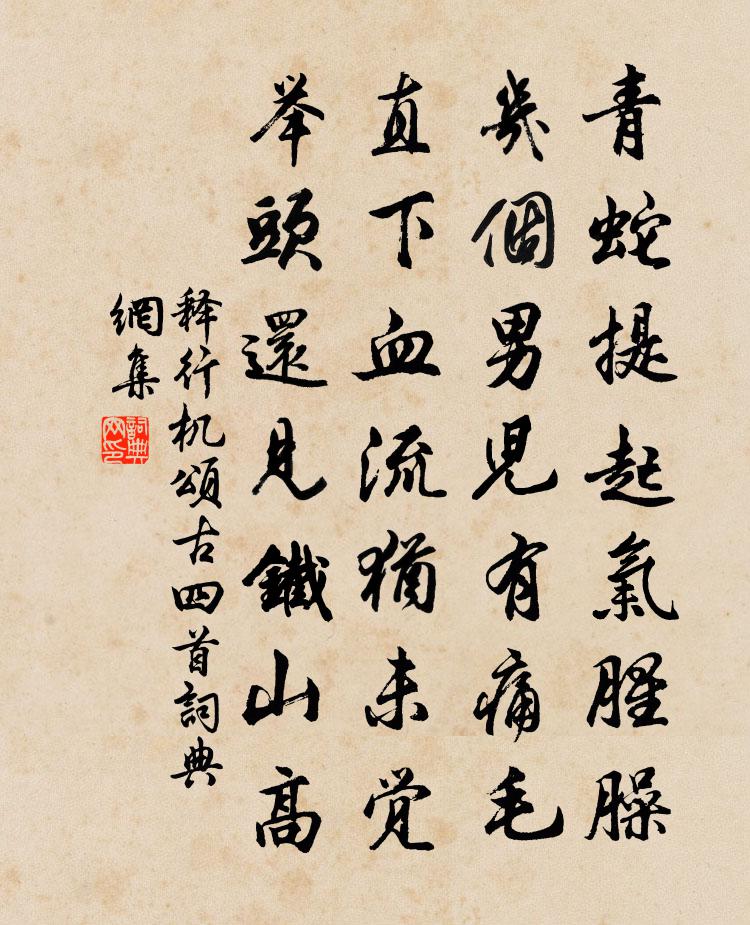 青蛇提起氣腥臊
幾個男児有痛毛
直下血流猶未覚
举頭還見鐵山高
释行机頌古四首詞典
網集
詞典網印